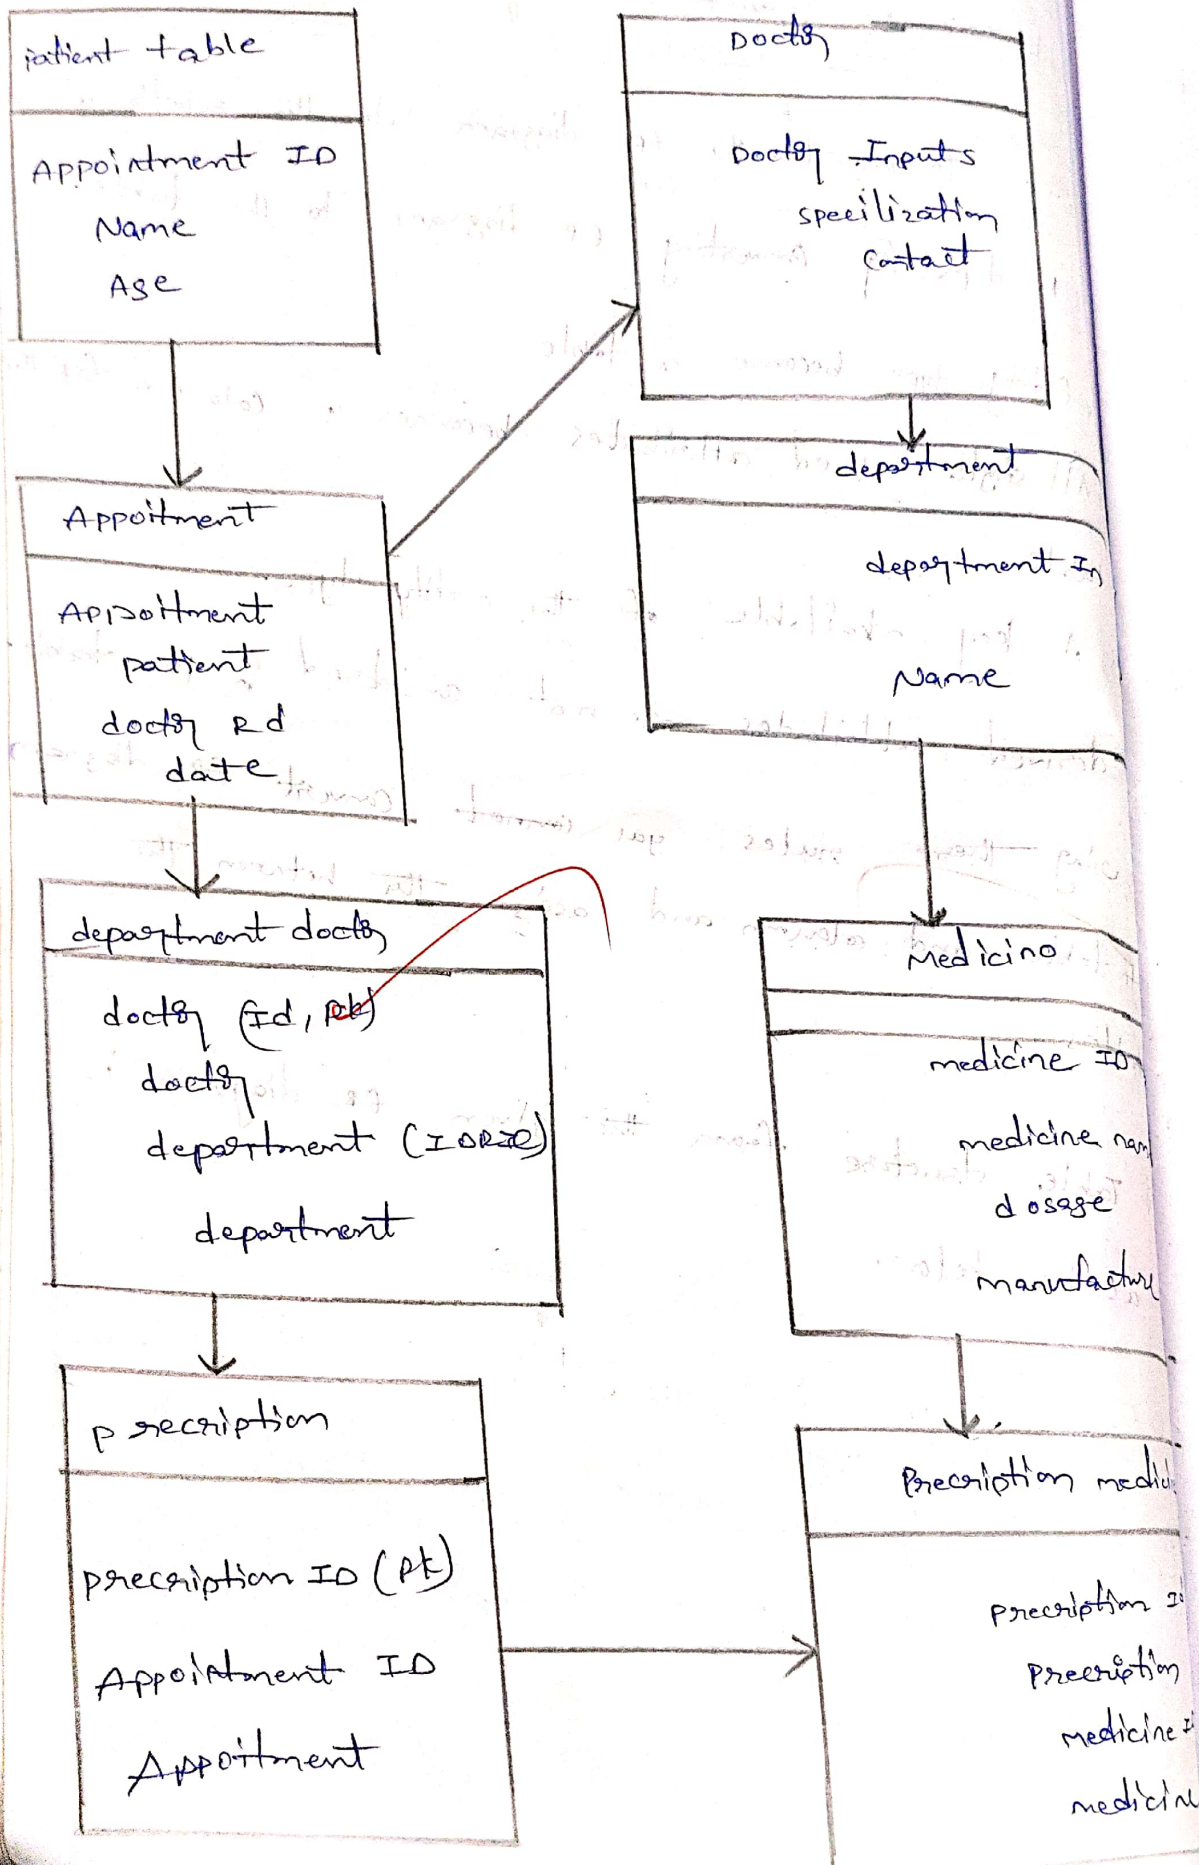 patient table
Appointment ID
Name
Age
Appoitment
Appoitment
patient
doctor Rd
date
department doctor
doctor (Id, pk)
doctor
department
department
precription
precription ID (pk)
Appointment ID
Appoitment
Doctor
Doctor Inputs
specilization
Contact
department
department In
Name
Medicino
medicine ID
medicine nam
dosage
manufacture
Precription medici
precription I
precription
medicine I
medicine